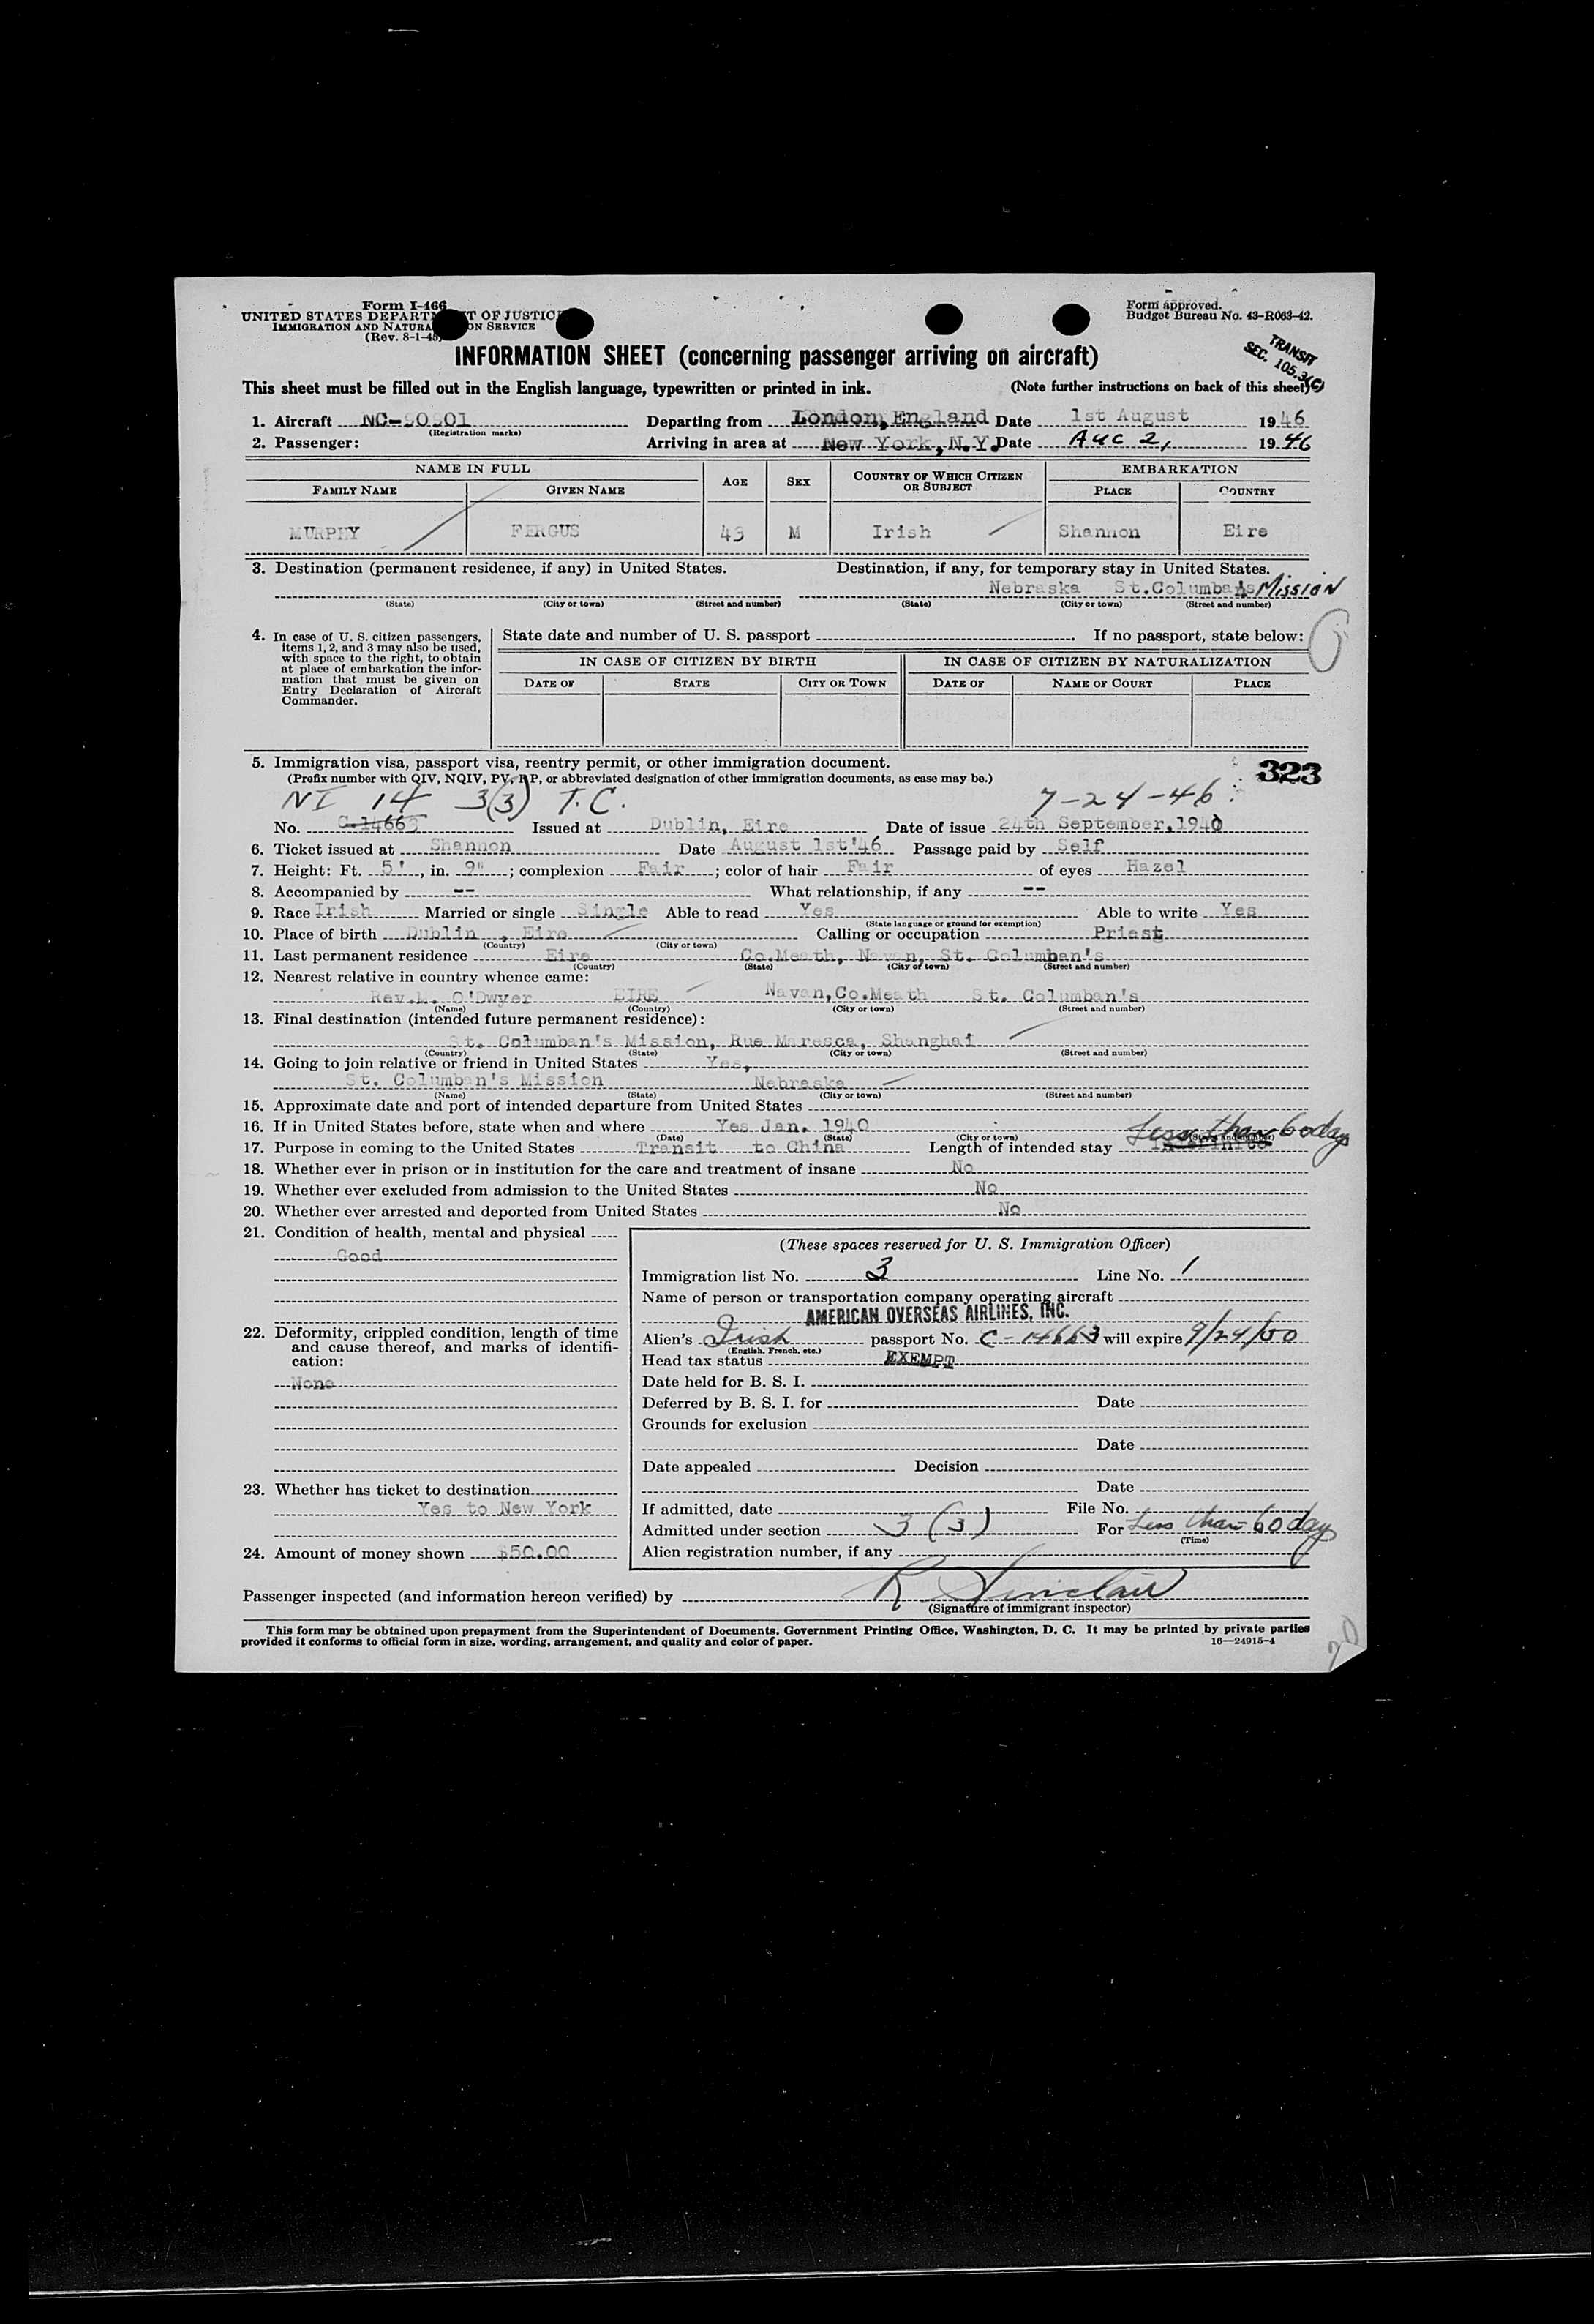 Form I-466
UNITED STATES DEPARTMENT OF JUSTICE
IMMIGRATION AND NATURALIZATION SERVICE
(Rev. 8-1-45)
Form approved.
Budget Bureau No. 43-R063-42.
TRANSIT
SEC. 105.3(C)
INFORMATION SHEET (concerning passenger arriving on aircraft)
This sheet must be filled out in the English language, typewritten or printed in ink. (Note further instructions on back of this sheet)
1. Aircraft NC-90901 Departing from London, England Date 1st August 1946
(Registration marks)
2. Passenger: Arriving in area at New York, N.Y. Date AUG 2, 1946
NAME IN FULL AGE SEX COUNTRY OF WHICH CITIZEN OR SUBJECT EMBARKATION
FAMILY NAME GIVEN NAME PLACE COUNTRY
MURPHY FERGUS 43 M Irish Shannon Eire
3. Destination (permanent residence, if any) in United States. Destination, if any, for temporary stay in United States.
Nebraska St.Columban's MISSION
(State) (City or town) (Street and number) (State) (City or town) (Street and number)
4. In case of U. S. citizen passengers, items 1, 2, and 3 may also be used, with space to the right, to obtain at place of embarkation the information that must be given on Entry Declaration of Aircraft Commander.
State date and number of U. S. passport If no passport, state below:
IN CASE OF CITIZEN BY BIRTH IN CASE OF CITIZEN BY NATURALIZATION
DATE OF STATE CITY OR TOWN DATE OF NAME OF COURT PLACE
5. Immigration visa, passport visa, reentry permit, or other immigration document.
(Prefix number with QIV, NQIV, PV, RP, or abbreviated designation of other immigration documents, as case may be.)
323
NI 14 3(3) T.C. 7-24-46
No. C-14663 Issued at Dublin, Eire Date of issue 24th September, 1940
6. Ticket issued at Shannon Date August 1st'46 Passage paid by Self
7. Height: Ft. 5', in. 9"; complexion Fair; color of hair Fair of eyes Hazel
8. Accompanied by -- What relationship, if any --
9. Race Irish Married or single Single Able to read Yes Able to write Yes
(State language or ground for exemption)
10. Place of birth Dublin, Eire Calling or occupation Priest
(Country) (City or town)
11. Last permanent residence Eire Co.Meath, Navan, St. Columban's
(Country) (State) (City or town) (Street and number)
12. Nearest relative in country whence came:
Rev.M. O'Dwyer EIRE Navan,Co.Meath St. Columban's
(Name) (Country) (City or town) (Street and number)
13. Final destination (intended future permanent residence):
St. Columban's Mission, Rue Maresca, Shanghai
(Country) (State) (City or town) (Street and number)
14. Going to join relative or friend in United States Yes,
St. Columban's Mission Nebraska
(Name) (State) (City or town) (Street and number)
15. Approximate date and port of intended departure from United States
16. If in United States before, state when and where Yes Jan. 1940
(Date) (State) (City or town) (Street and number)
Less than 60 days
17. Purpose in coming to the United States Transit to China Length of intended stay Indefinite
18. Whether ever in prison or in institution for the care and treatment of insane No
19. Whether ever excluded from admission to the United States No
20. Whether ever arrested and deported from United States No
21. Condition of health, mental and physical
Good
22. Deformity, crippled condition, length of time and cause thereof, and marks of identification:
None
23. Whether has ticket to destination
Yes to New York
24. Amount of money shown $50.00
(These spaces reserved for U. S. Immigration Officer)
Immigration list No. 3 Line No. 1
Name of person or transportation company operating aircraft
AMERICAN OVERSEAS AIRLINES, INC.
Alien's Irish passport No. C-14663 will expire 9/24/50
(English, French, etc.)
Head tax status EXEMPT
Date held for B. S. I.
Deferred by B. S. I. for Date
Grounds for exclusion
Date
Date appealed Decision
Date
If admitted, date File No.
Admitted under section 3(3) For Less than 60 days
(Time)
Alien registration number, if any
Passenger inspected (and information hereon verified) by R Sinclair
(Signature of immigrant inspector)
This form may be obtained upon prepayment from the Superintendent of Documents, Government Printing Office, Washington, D. C. It may be printed by private parties
provided it conforms to official form in size, wording, arrangement, and quality and color of paper. 16—24915-4